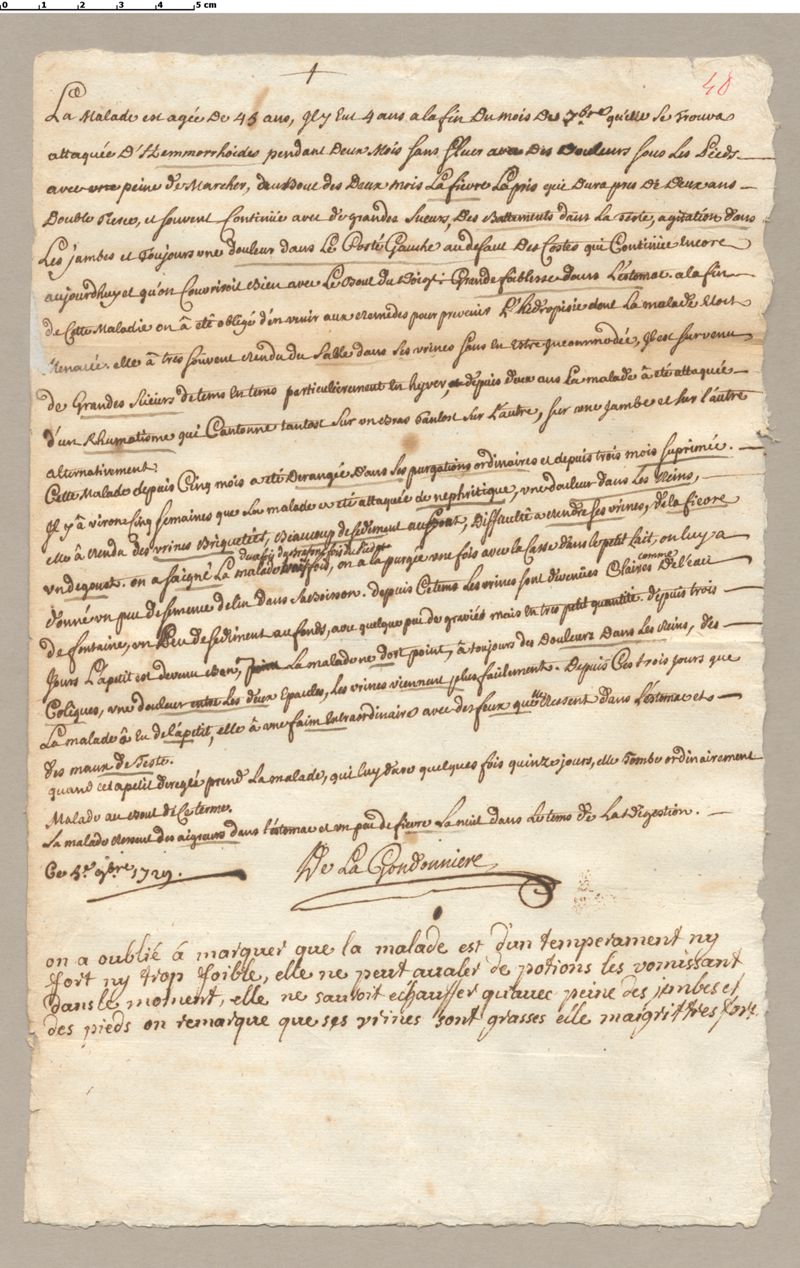 0 1 2 3 4 5 cm
48
La Malade est agée De 45 ans, Il y Eut 4 ans a la fin Du mois De 7bre qu'elle se Trouva
attaquée D'Hemmorrhoides pendant Deux Mois sans fluer avec Des Douleurs sous Les Pieds
avec une peine de Marcher, du Bout des Deux mois La fievre La pris qui Dura pres De Deux ans
Double Tierce, et souvent Continüe avec de grandes sueurs, Des Battements dans La teste, agitation dans
Les jambes et Toujours une douleur dans Le Costé Gauche au defaut Des Costes qui Continüe Encore
aujourdhuy et qu'on Couvriroit Bien avec Le Bout du Doigt; Grande foiblesse dans L'estomac. a la fin
de Cette Maladie on â eté obligé d'en venir aux Remedes pour prevenir L'hidropisie dont La malade Etoit
Menacée. elle â tres souvent Rendu du Sable dans Ses vrines sans En Estre Jncommodée, Il est survenu
de Grandes Süeurs de tems En tems particulierement en hyver, depuis deux ans La malade â eté attaquée
d'un Rhumatisme qui Cantonne tantost sur un Bras tantost sur L'autre, sur une Jambe et sur l'autre
alternativement.
Cette Malade depuis Cinq mois a eté Derangée Dans Ses purgations ordinaires et depuis trois mois suprimée.
Il y â viron Sinq semaines que La malade a eté attaquée de nephritique, vne douleur dans Les Reins,
elle â Rendu des vrines Briquetées, Beaucoup de sediment au fond, Difficulté a Rendre ses vrines, de la fievre
vn degoust. on a saigné La malade fois, on a la purgée vne fois avec la Casse dans le petit Lait, on luy a
du pied
donné vn peu de semence de lin dans sa Boisson. Depuis Ce tems Les vrines sont devenües Claires comme De l'eau
de fontaine, vn Peu de sediment au fonds, avec quelque peu de graviés mais En tres petit quantité. depuis trois
Jours L'apetit est devenu Bon, La malade ne dort point, â toujours des Douleurs Dans Les Reins, des
Coliques, vne douleur entre Les deux Epaules, Les vrines viennent plus facilement. Depuis Ces trois jours que
La malade â Eu de l'apetit, elle â vne faim Extraordinaire avec des feux qu'elle Ressent dans l'estomac et
des maux de Teste.
quand cet apetit deregle prend La malade, qui luy dure quelques fois quinze jours, elle Tombe ordinairement
Malade au Bout de Ce terme.
La malade Ressent des aigreurs dans l'estomac et vn peu de fievre La nuit dans Le tems de La digestion.
Ce 4e 9bre 1729.
De La Gondonniere
on a oublié â marquer que la malade est d'un temperament ny
fort ny trop foible, elle ne peut avaler de potions les vomissant
dans le moment, elle ne sauroit echauffer qu'avec peine des jambes et
des pieds on remarque que ses vrines sont grasses elle maigrit tres fort.